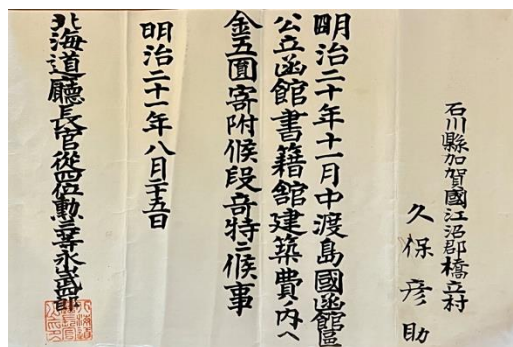 石川縣加賀國江沼郡橋立村
久保彦助
明治二十年十一月中渡島國函館區
公立函館書籍館建築費ノ内ヘ
金五圓寄附候段奇特ニ候事
明治二十一年八月二十五日
北海道廳長官從四位勳三等永山武四郎